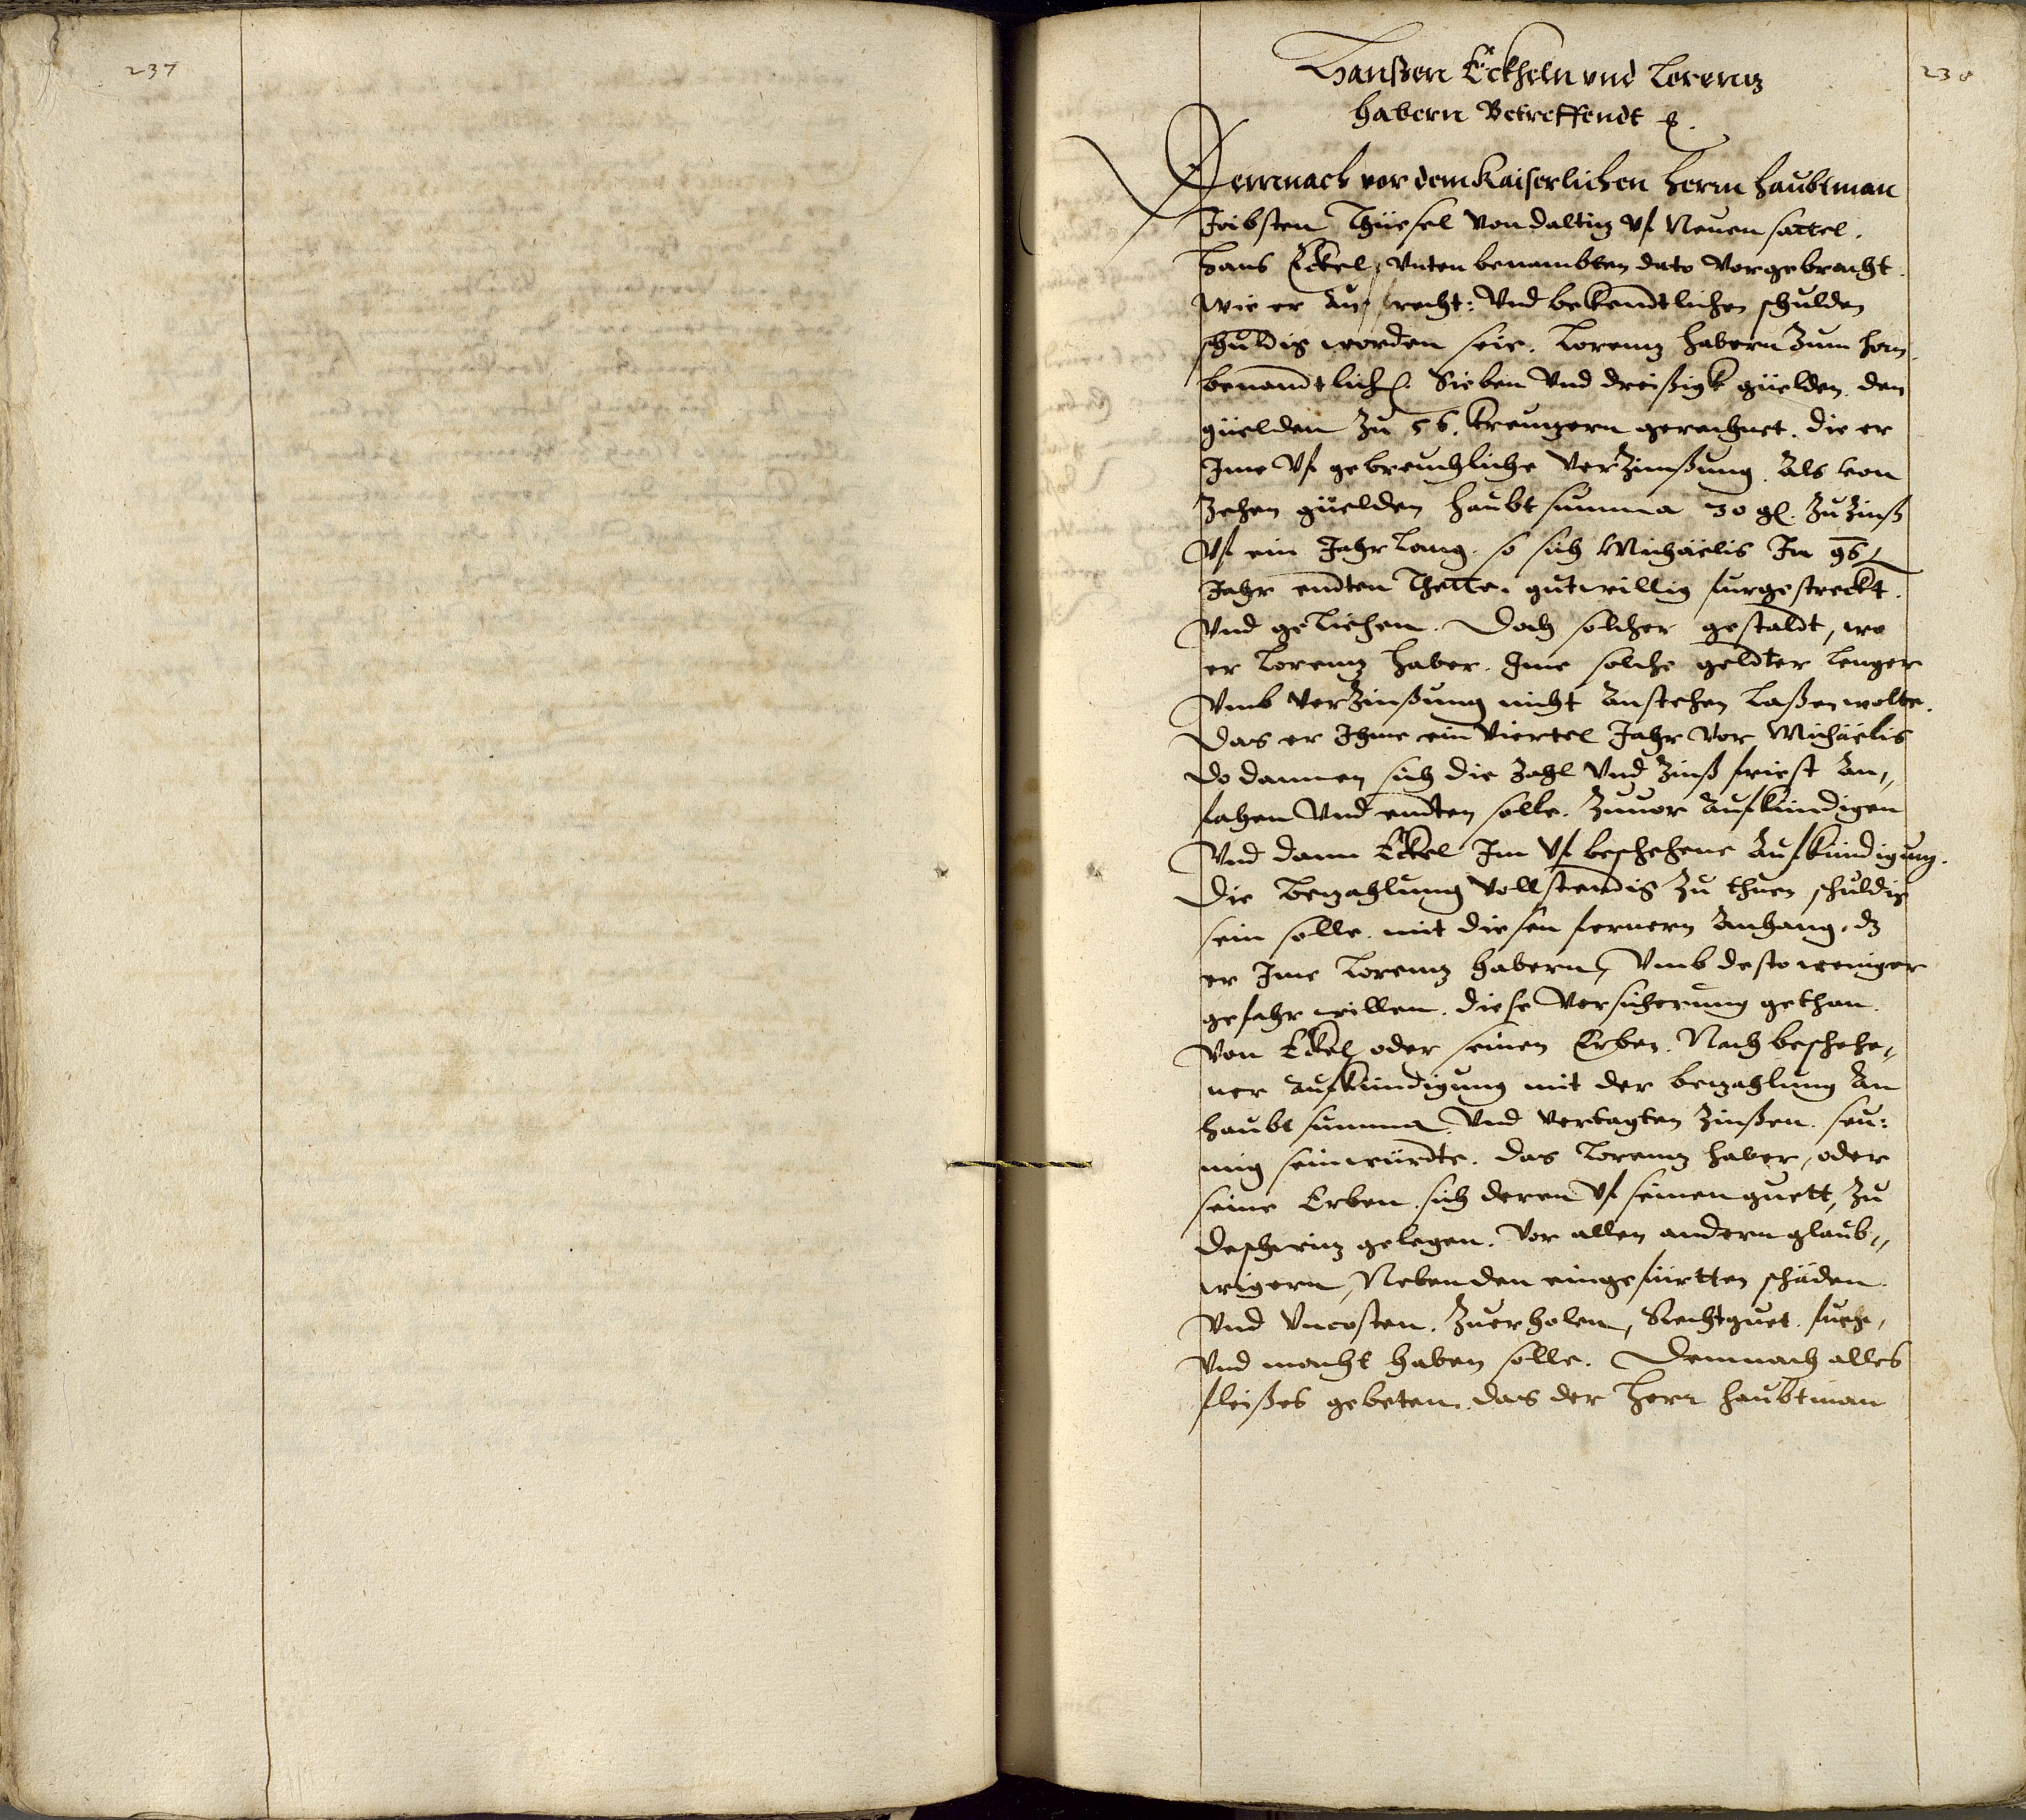 237
238
Hanßen Eckheln vnd Lorentz
habern Betreffendt
Demnach vor dem Kaiserlichen herrn haubtman
Jobsten Thüesel von daltiz vf Neuensattel.
Hans Eckel, vnten benambten dato vorgebracht.
wie er An recht: vnd bekendtlichen schulden
schuldig worden seie. Lorentz habern Zum
benandtlich. Sieben vnd dreißigk güelden. den
güelden Zu 56. kreuzern gerechnet. die er
Ime vf gebreuchliche verzinßung. Als von
Zehen güelden haubt summa 30 g. Zu Zinß
vf ein Jahr lang. so sich Michäelis Jn 96
Jahr endten Thette. gutwillig furgestreckt.
vnd geliehen. doch solcher gestaldt, wo
er Lorentz haber. Ime solche geldter lenger
vmb verZinßung nicht anstehen laßen wolte.
das er Ihme ein viertel Jahr vor Michäelis
do dannen sich die Zahl vnd Zinß friest An,,
fahen vnd endten solle. Zuuor aufkündigen
vnd dann Eckel Im vf beschehene Aufkündigung.
die bezahlung vollstendig Zu thuen schuldig
sein solle. mit diesen fernern Anhang. dz
er Ime Lorentz habern, vmb desto weniger
gefahr willen. diese versicherung gethan.
von Eckel oder seinen Erben. Nach beschehe,,
ner aufkündigung mit der bezahlung An
haubt summa. vnd vertagten Zinßen. seu:
mig sein würdte. das Lorentz haber, oder
seine Erben. sich deren vf seinen guett, Zu
deschwitz gelegen. vor allen andern glaub,,
wigern, Neben den eingefürtten schäden.
vnd vncosten. Zuerholen, Recht guet. fueg,
vnd macht haben solle. Demnach alles
fleißes gebeten. das der herr haubtman